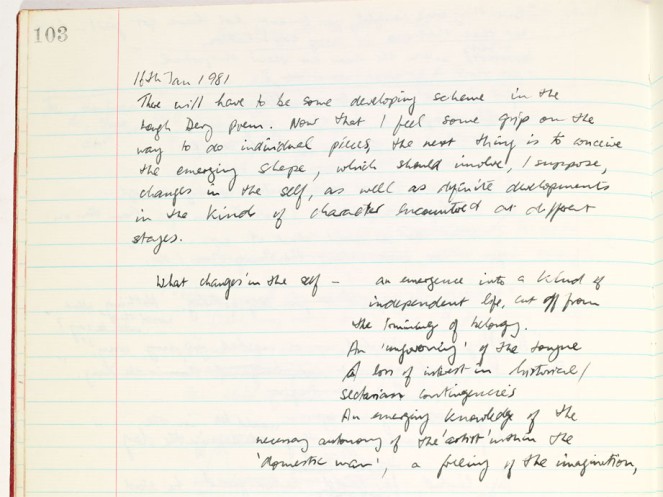 103
16th Jan 1981
There will have to be some developing scheme in the
Lough Derg poem. Now that I feel some grip on the
way to do individual pieces, the next thing is to conceive
the emerging shape, which should involve, I suppose,
changes in the self, as well as definite developments
in the kinds of character encountered at different
stages.
What changes in the self — an emergence into a kind of
independent life, cut off from
the of belonging.
An 'ungoverning' of the tongue
A loss of interest in historical/
sectarian contingencies
An emerging knowledge of the
necessary autonomy of the 'artist' within the
'domestic man', a freeing of the imagination,